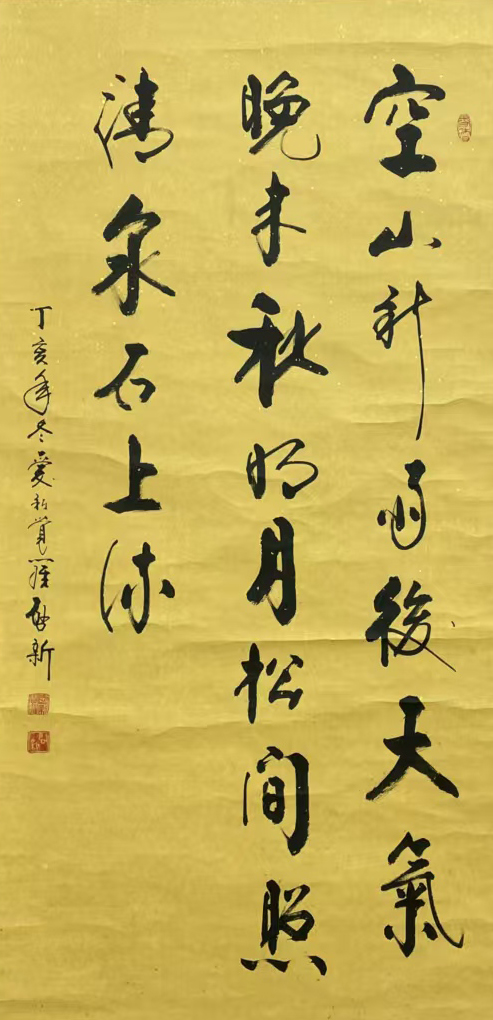 空山新雨後天氣
晚来秋明月松間照
清泉石上流
丁亥年冬愛新覺羅啟新